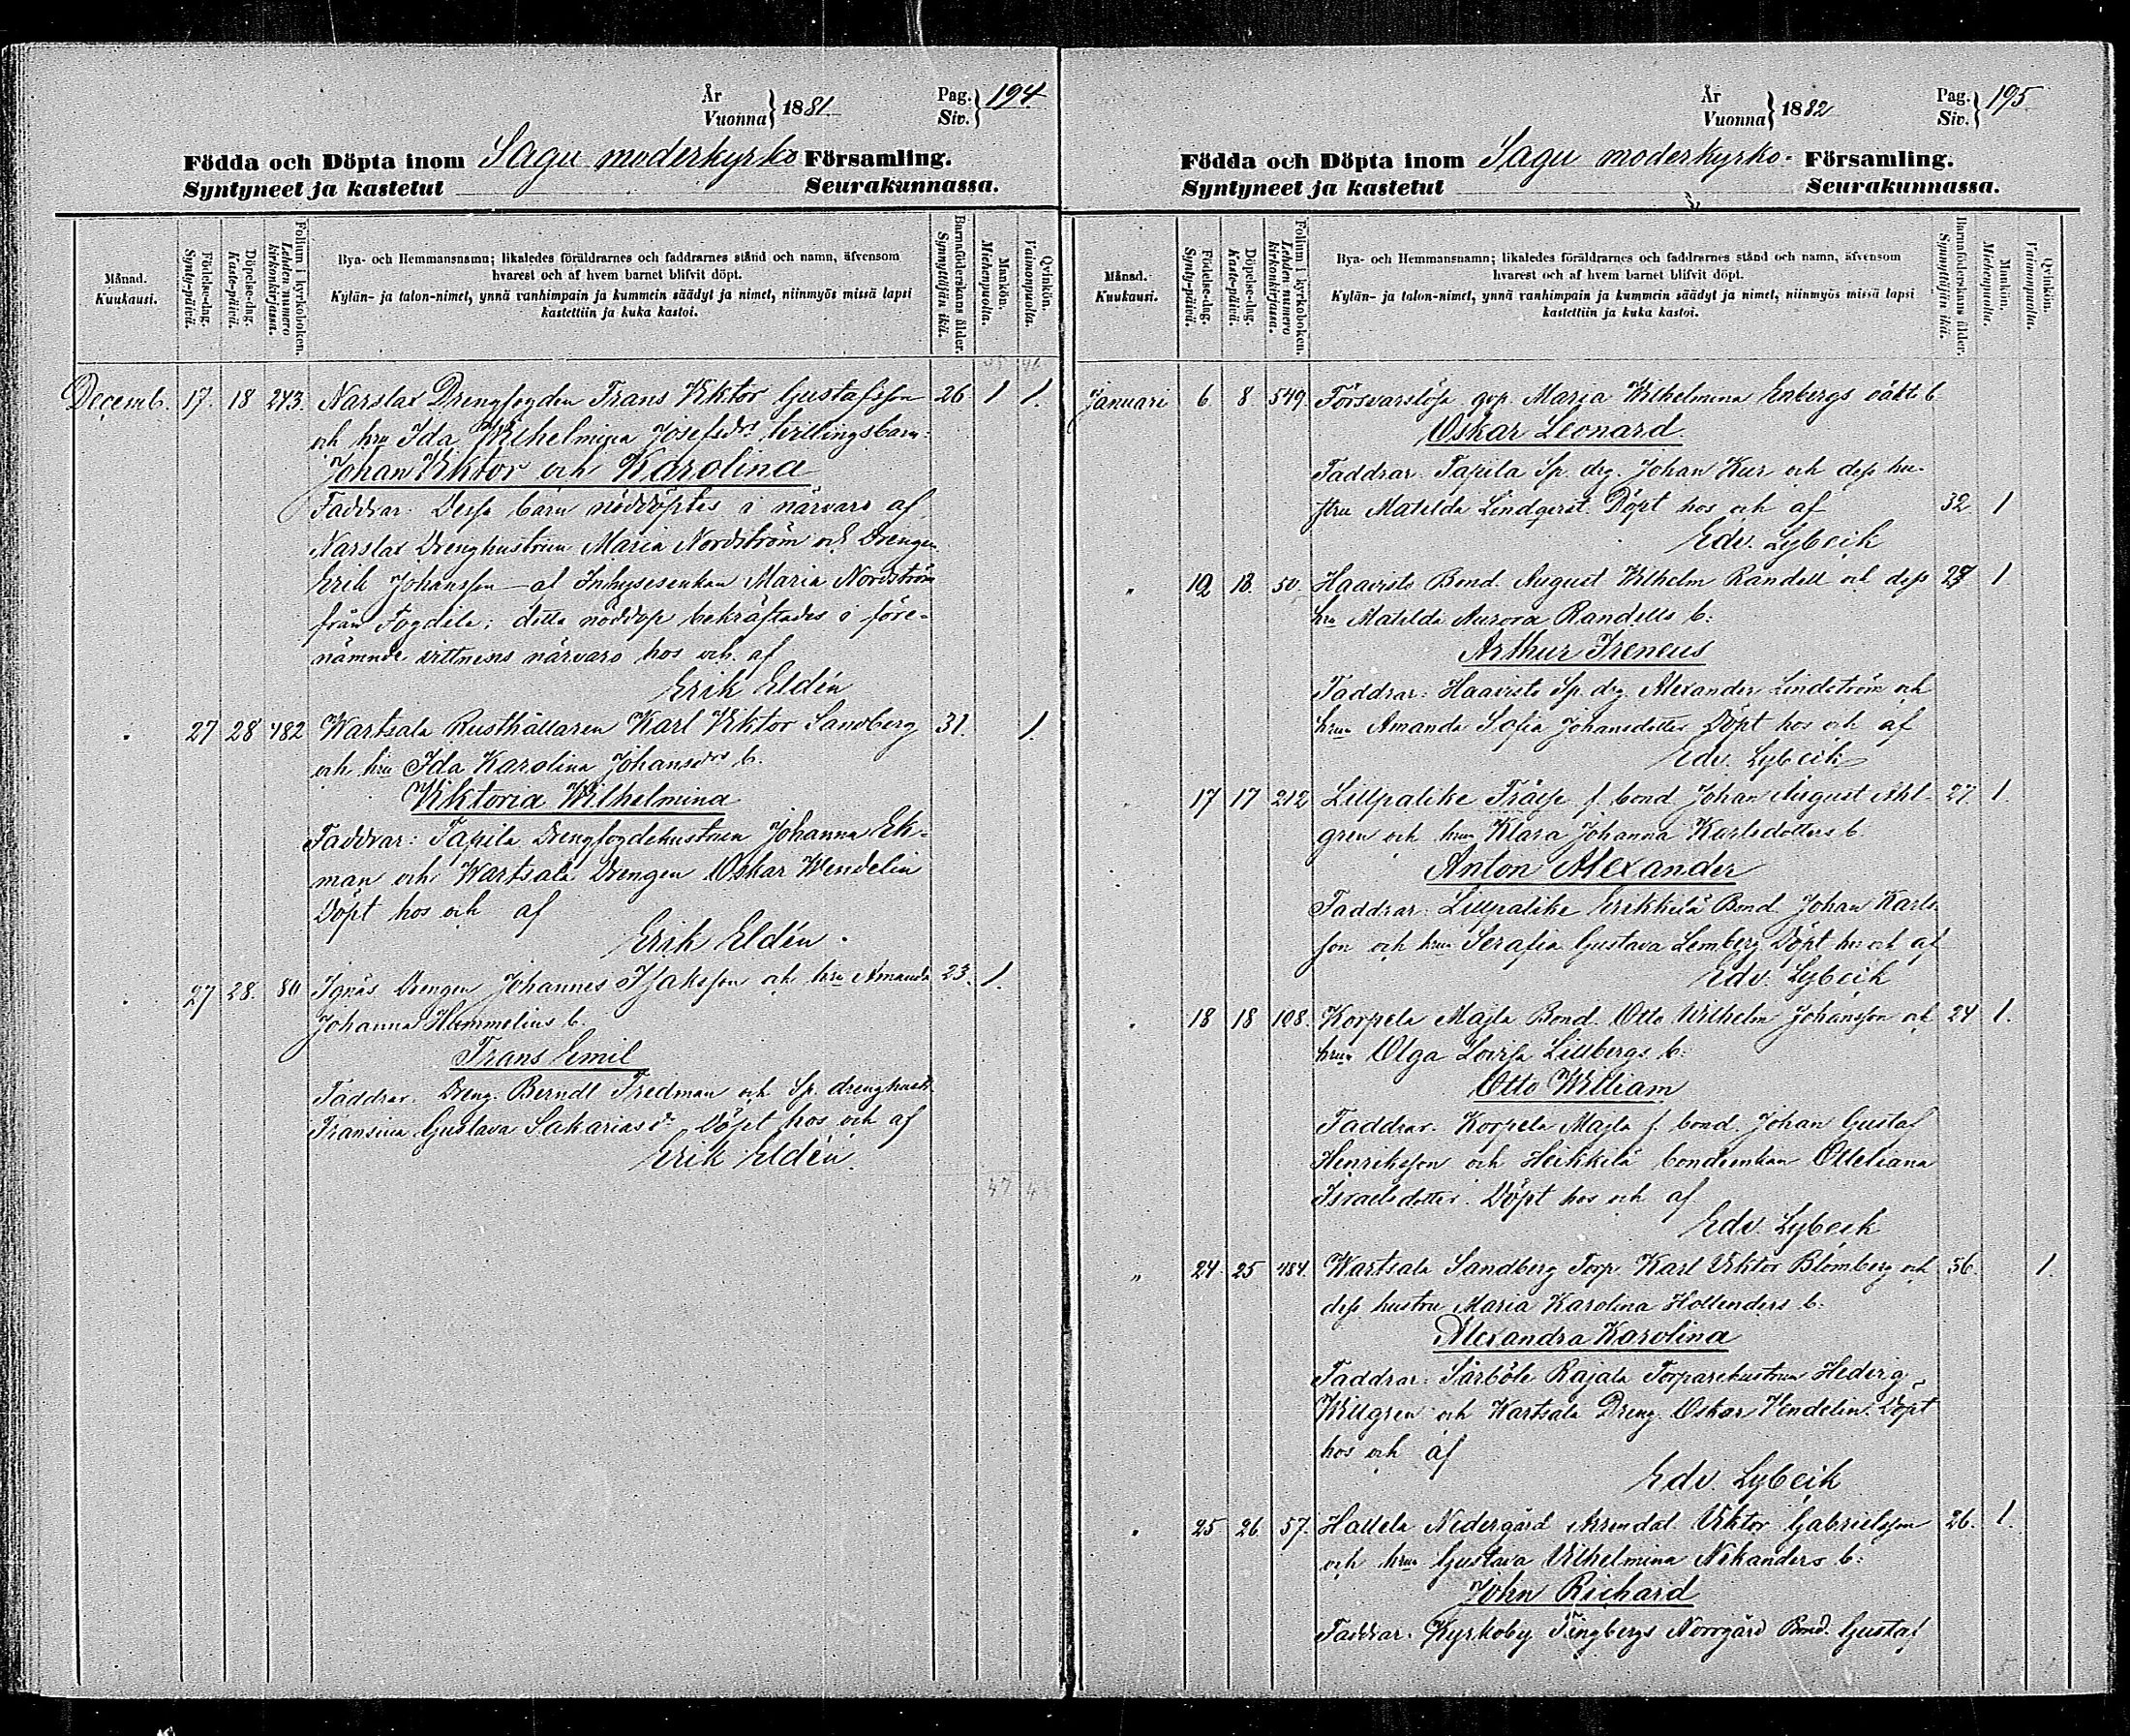 År
Vuonna } 1881
Pag.
Siv. } 194
Födda och Döpta inom Sagu moderkyrko Församling.
Syntyneet ja kastetut Seurakunnassa.
Månad.
Kuukausi.
Födelse-dag.
Synty-päivä.
Döpelse-dag.
Kaste-päivä.
Folium i kyrkoboken.
Lehden numero kirkonkirjassa.
Bya- och Hemmansnamn; likaledes föräldrarnes och faddrarnes stånd och namn, äfvensom
hvarest och af hvem barnet blifvit döpt.
Kylän- ja talon-nimet, ynnä vanhimpain ja kummein säädyt ja nimet, niinmyös missä lapsi
kastettiin ja kuka kastoi.
Barnaföderskans ålder.
Synnyttäjän ikä.
Mankön.
Miehenpuolta.
Qvinkön.
Vaimonpuolta.
Decemb. 17. 18 243. Narslax Drengfogden Frans Viktor Gustafsson 26 1 1.
och hru Ida Wilhelmina Josefsdrs tvillingsbarn:
Johan Viktor och Karolina
Faddrar. Dessa barn nöddöptes i närvaro af
Narslax Drenghustrun Maria Nordström och Drengen
Erik Johansson al Inhysesenkan Maria Nordström
från Fogdila; detta nöddop bekräftades i före-
nämnde vittnens närvaro hos och af
Erik Eldén
" 27 28 482 Wartsala Rusthållaren Karl Viktor Sandberg 31. 1.
och hru Ida Karolina Johansdrs b.
Viktoria Wilhelmina
Faddrar: Tapila Drengfogdehustrun Johanna Ek-
man och Wartsala Drengen Oskar Wendelin
Döpt hos och af
Erik Eldén.
" 27 28. 811 Drengen Johannes Isaksson och hru Amanda 23. 1.
Johanna Hemmelins b.
Frans Emil
Faddrar. Dreng. Berndt Fredman och Sp. drenghustr.
Fransina Gustava Sakariasdr Döpt hos och af
Erik Eldén.
År
Vuonna } 1882
Pag.
Siv. } 195
Födda och Döpta inom Sagu moderkyrko- Församling.
Syntyneet ja kastetut Seurakunnassa.
Månad.
Kuukausi.
Födelse-dag.
Synty-päivä.
Döpelse-dag.
Kaste-päivä.
Folium i kyrkoboken.
Lehden numero kirkonkirjassa.
Bya- och Hemmansnamn; likaledes föräldrarnes och faddrarnes stånd och namn, äfvensom
hvarest och af hvem barnet blifvit döpt.
Kylän- ja talon-nimet, ynnä vanhimpain ja kummein säädyt ja nimet, niinmyös missä lapsi
kastettiin ja kuka kastoi.
Barnaföderskans ålder.
Synnyttäjän ikä.
Mankön.
Miehenpuolta.
Qvinkön.
Vaimonpuolta.
Januari 6 8. 549. Försvarslösa qvp. Maria Wilhelmina Enbergs oäkta b
Oskar Leonard.
Faddrar. Tapila Sp. drg. Johan Kur och dess hu-
stru Matilda Lindqvist. Döpt hos och af 32 1
Edv. Lybeck
" 10 13. 50. Haavisto Bond. August Vilhelm Randell och dess 27 1
hru Matilda Aurora Randells b:
Arthur Ireneus
Faddrar: Haavisto Sp. drg. Alexander Lindström och
hrun Amanda Sofia Johansdotter Döpt hos och af
Edv. Lybeck
17 17 212 Lillpalike Fräise f. bond Johan August Ahl- 27 1.
gren och hrun Klara Johanna Karlsdotters b.
Anton Alexander
Faddrar: Lillpalike Erikkilä Bond Johan Karls-
son och hrun Serafia Gustava Lemberg Döpt hos och af
Edv. Lybeck
" 18 18 108. Korpela Majla Bond. Otto Wilhelm Johansson och 24 1.
hrun Olga Lovisa Lillbergs b:
Otto William
Faddrar. Korpela Majla f. bond. Johan Gustaf
Henriksson och Heikkilä bondeenkan Otteliana
Israelsdotter. Döpt hos och af
Edv. Lybeck
" 24. 25 484. Wartsala Sandberg Torp. Karl Viktor Blomberg och 36. 1.
dess hustru Maria Karolina Hollenders b.
Alexandra Karolina
Faddrar: Särböle Rajala Torparehustrun Hedvig
Willgren och Wartsala Dreng. Oskar Vendelin. Döpt
hos och af
Edv. Lybeck
" 25 26 57. Hallela Nedergård Arrendat. Viktor Gabrielsson 26. 1.
och hrun Gustava Vilhelmina Nikanders b:
John Richard
Faddrar. Kyrkoby Tingbergs Norrgård Bond. Gustaf